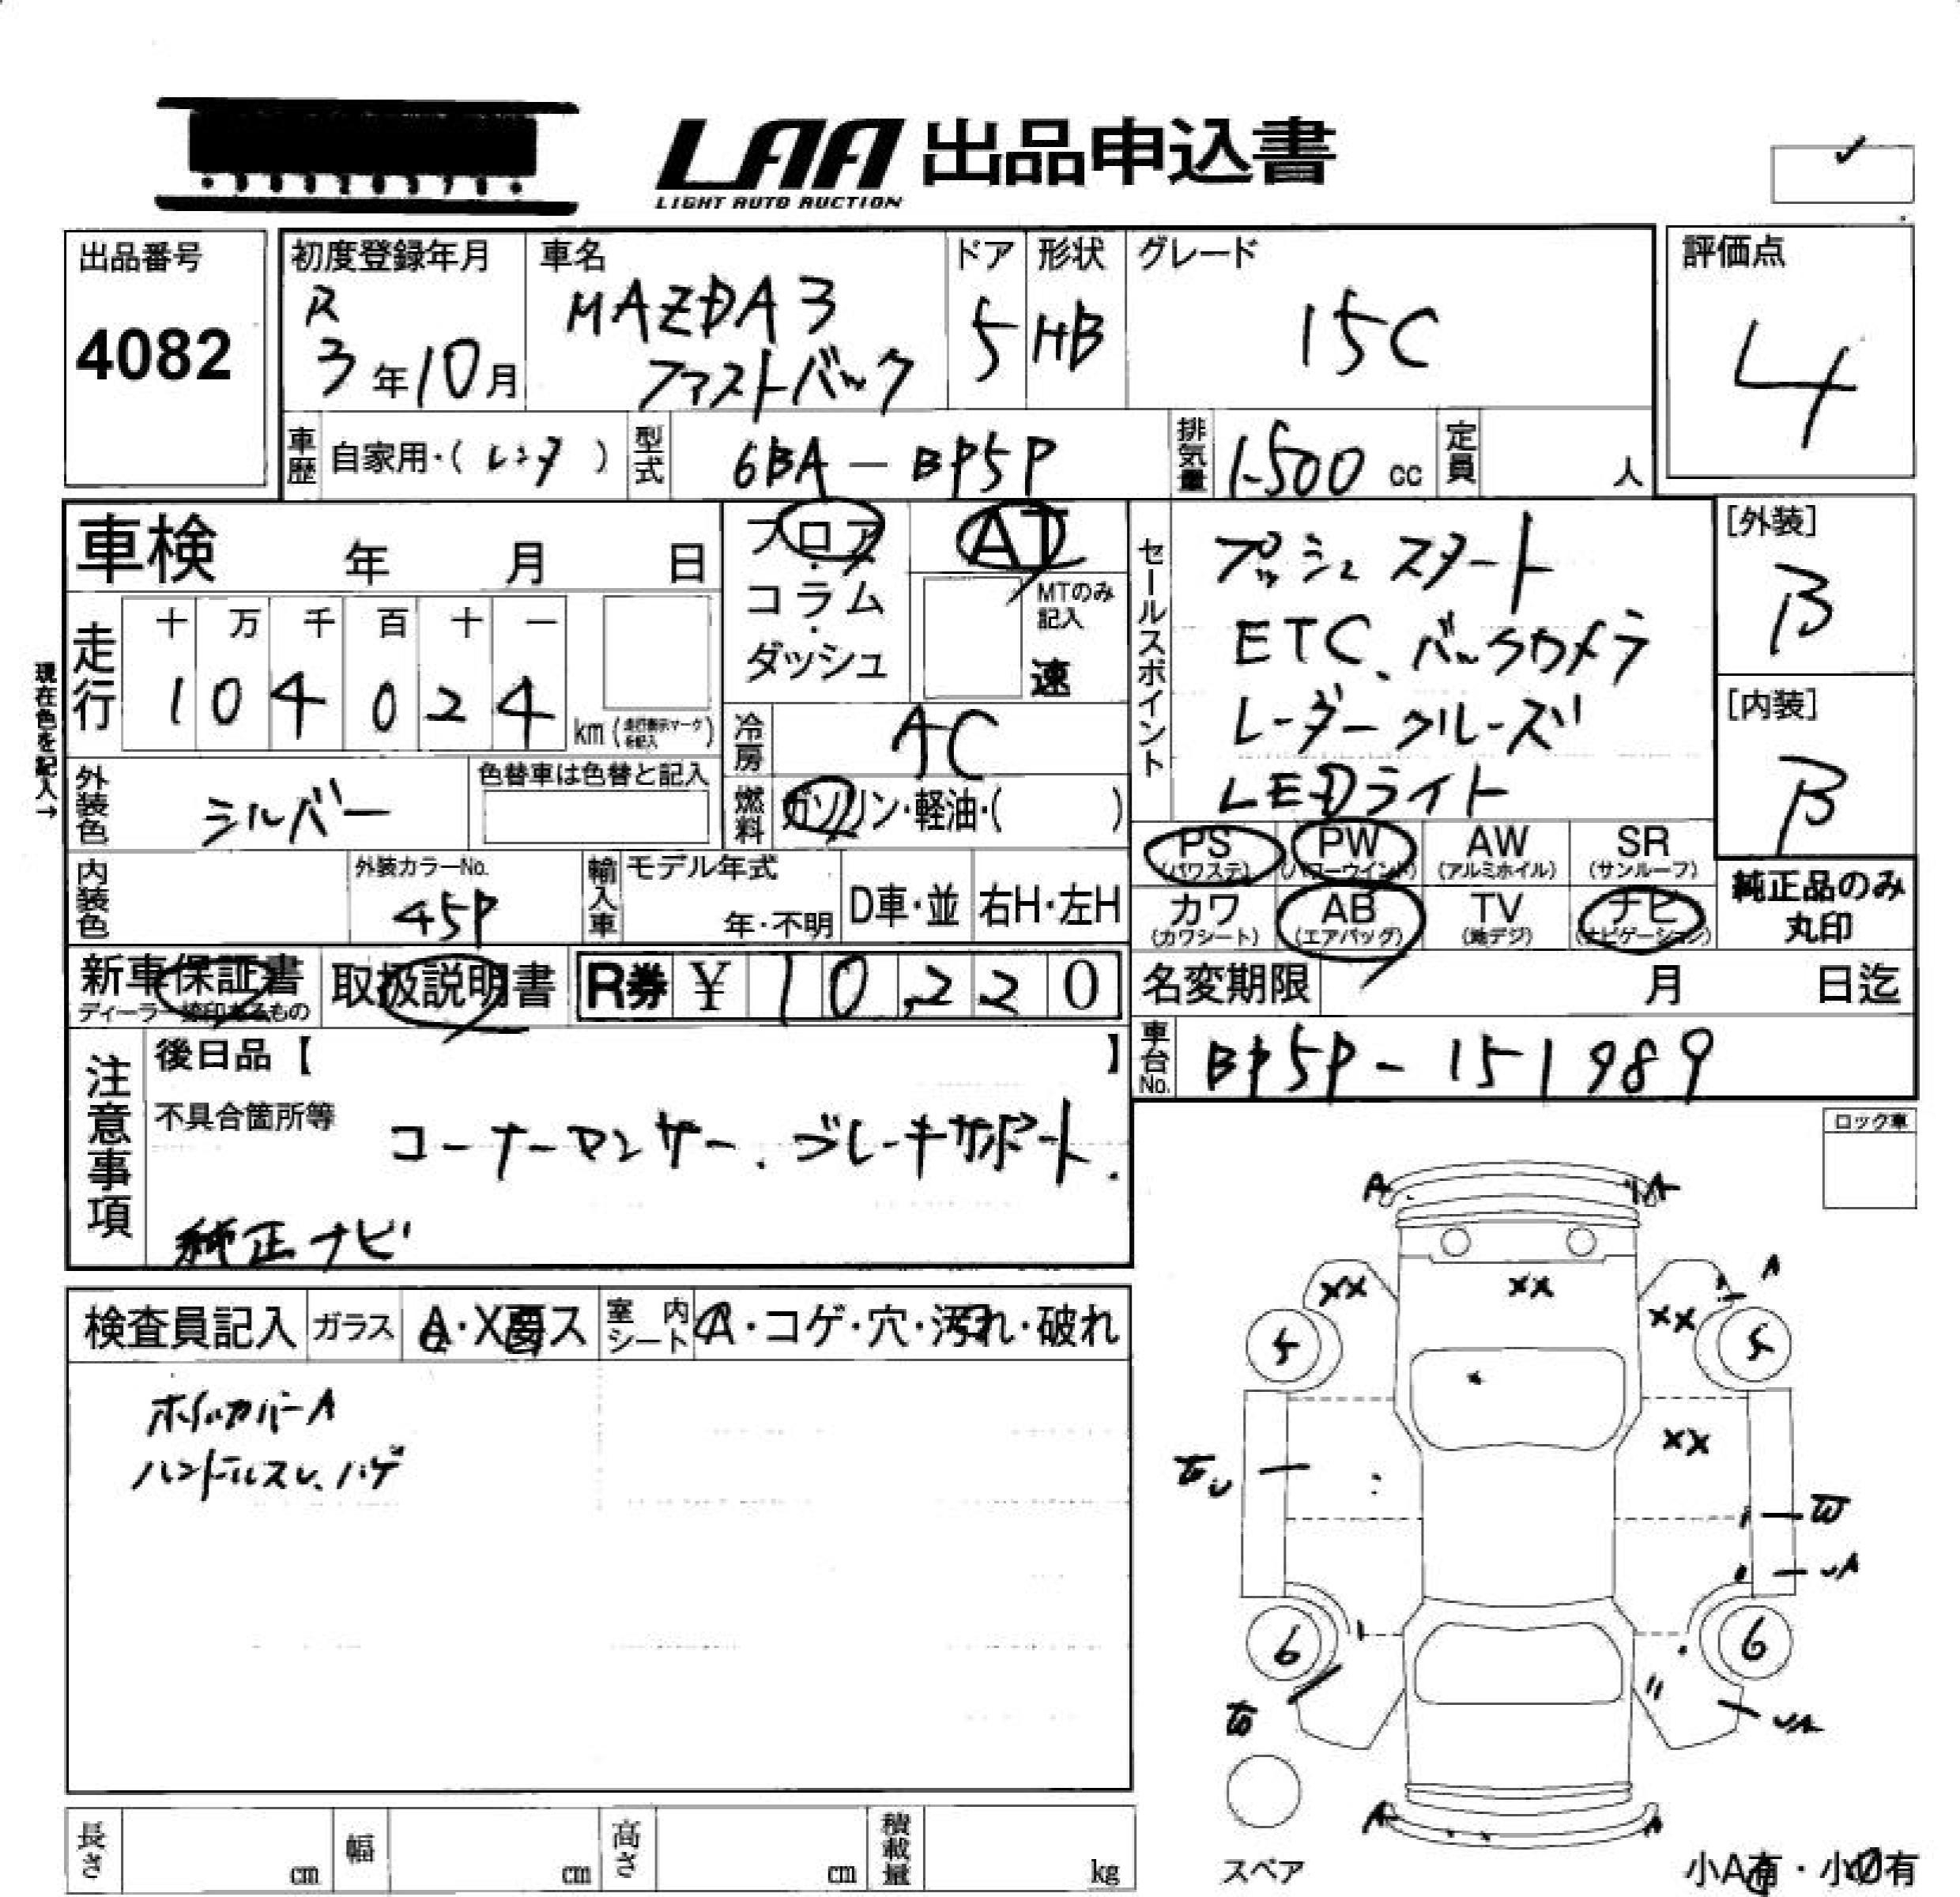 LAA 出品申込書
LIGHT AUTO AUCTION
出品番号
4082
初度登録年月
R
3年10月
車名
MAZDA3
ファストバック
ドア
5
形状
HB
グレード
15C
評価点
4
車歴
自家用・(レンタ)
型式
6BA-BP5P
排気量
1500 cc
定員
人
車検 年 月 日
フロア
・
コラム
・
ダッシュ
AT
MTのみ
記入
速
セールスポイント
プッシュスタート
ETC、バックカメラ
レーダークルーズ
LEDライト
[外装]
B
[内装]
B
現在色を記入→
走行
十 万 千 百 十 一
1 0 4 0 2 4
km(走行表示マークを記入)
冷房
AC
外装色
シルバー
色替車は色替と記入
燃料
ガソリン・軽油・( )
内装色
外装カラーNo.
45P
輸入車
モデル年式
年・不明
D車・並
右H・左H
PS
(パワステ)
PW
(パワーウインド)
AW
(アルミホイル)
SR
(サンルーフ)
カワ
(カワシート)
AB
(エアバッグ)
TV
(地デジ)
ナビ
(ナビゲーション)
純正品のみ
丸印
新車保証書
ディーラー捺印あるもの
取扱説明書
R券 ¥ 10,220
名変期限 月 日迄
車台No.
BP5P-151989
注意事項
後日品【 】
不具合箇所等
コーナーセンサー、ブレーキサポート、
純正ナビ
ロック車
検査員記入
ガラス
A・X要ス
室内
シート
A・コゲ・穴・汚れ・破れ
ホイルカバーA
ハンドルスレ、ハゲ
A A
XX XX XX A
5 5
XX
6 6
A A
スペア
小A有・小U有
長さ cm
幅 cm
高さ cm
積載量 kg